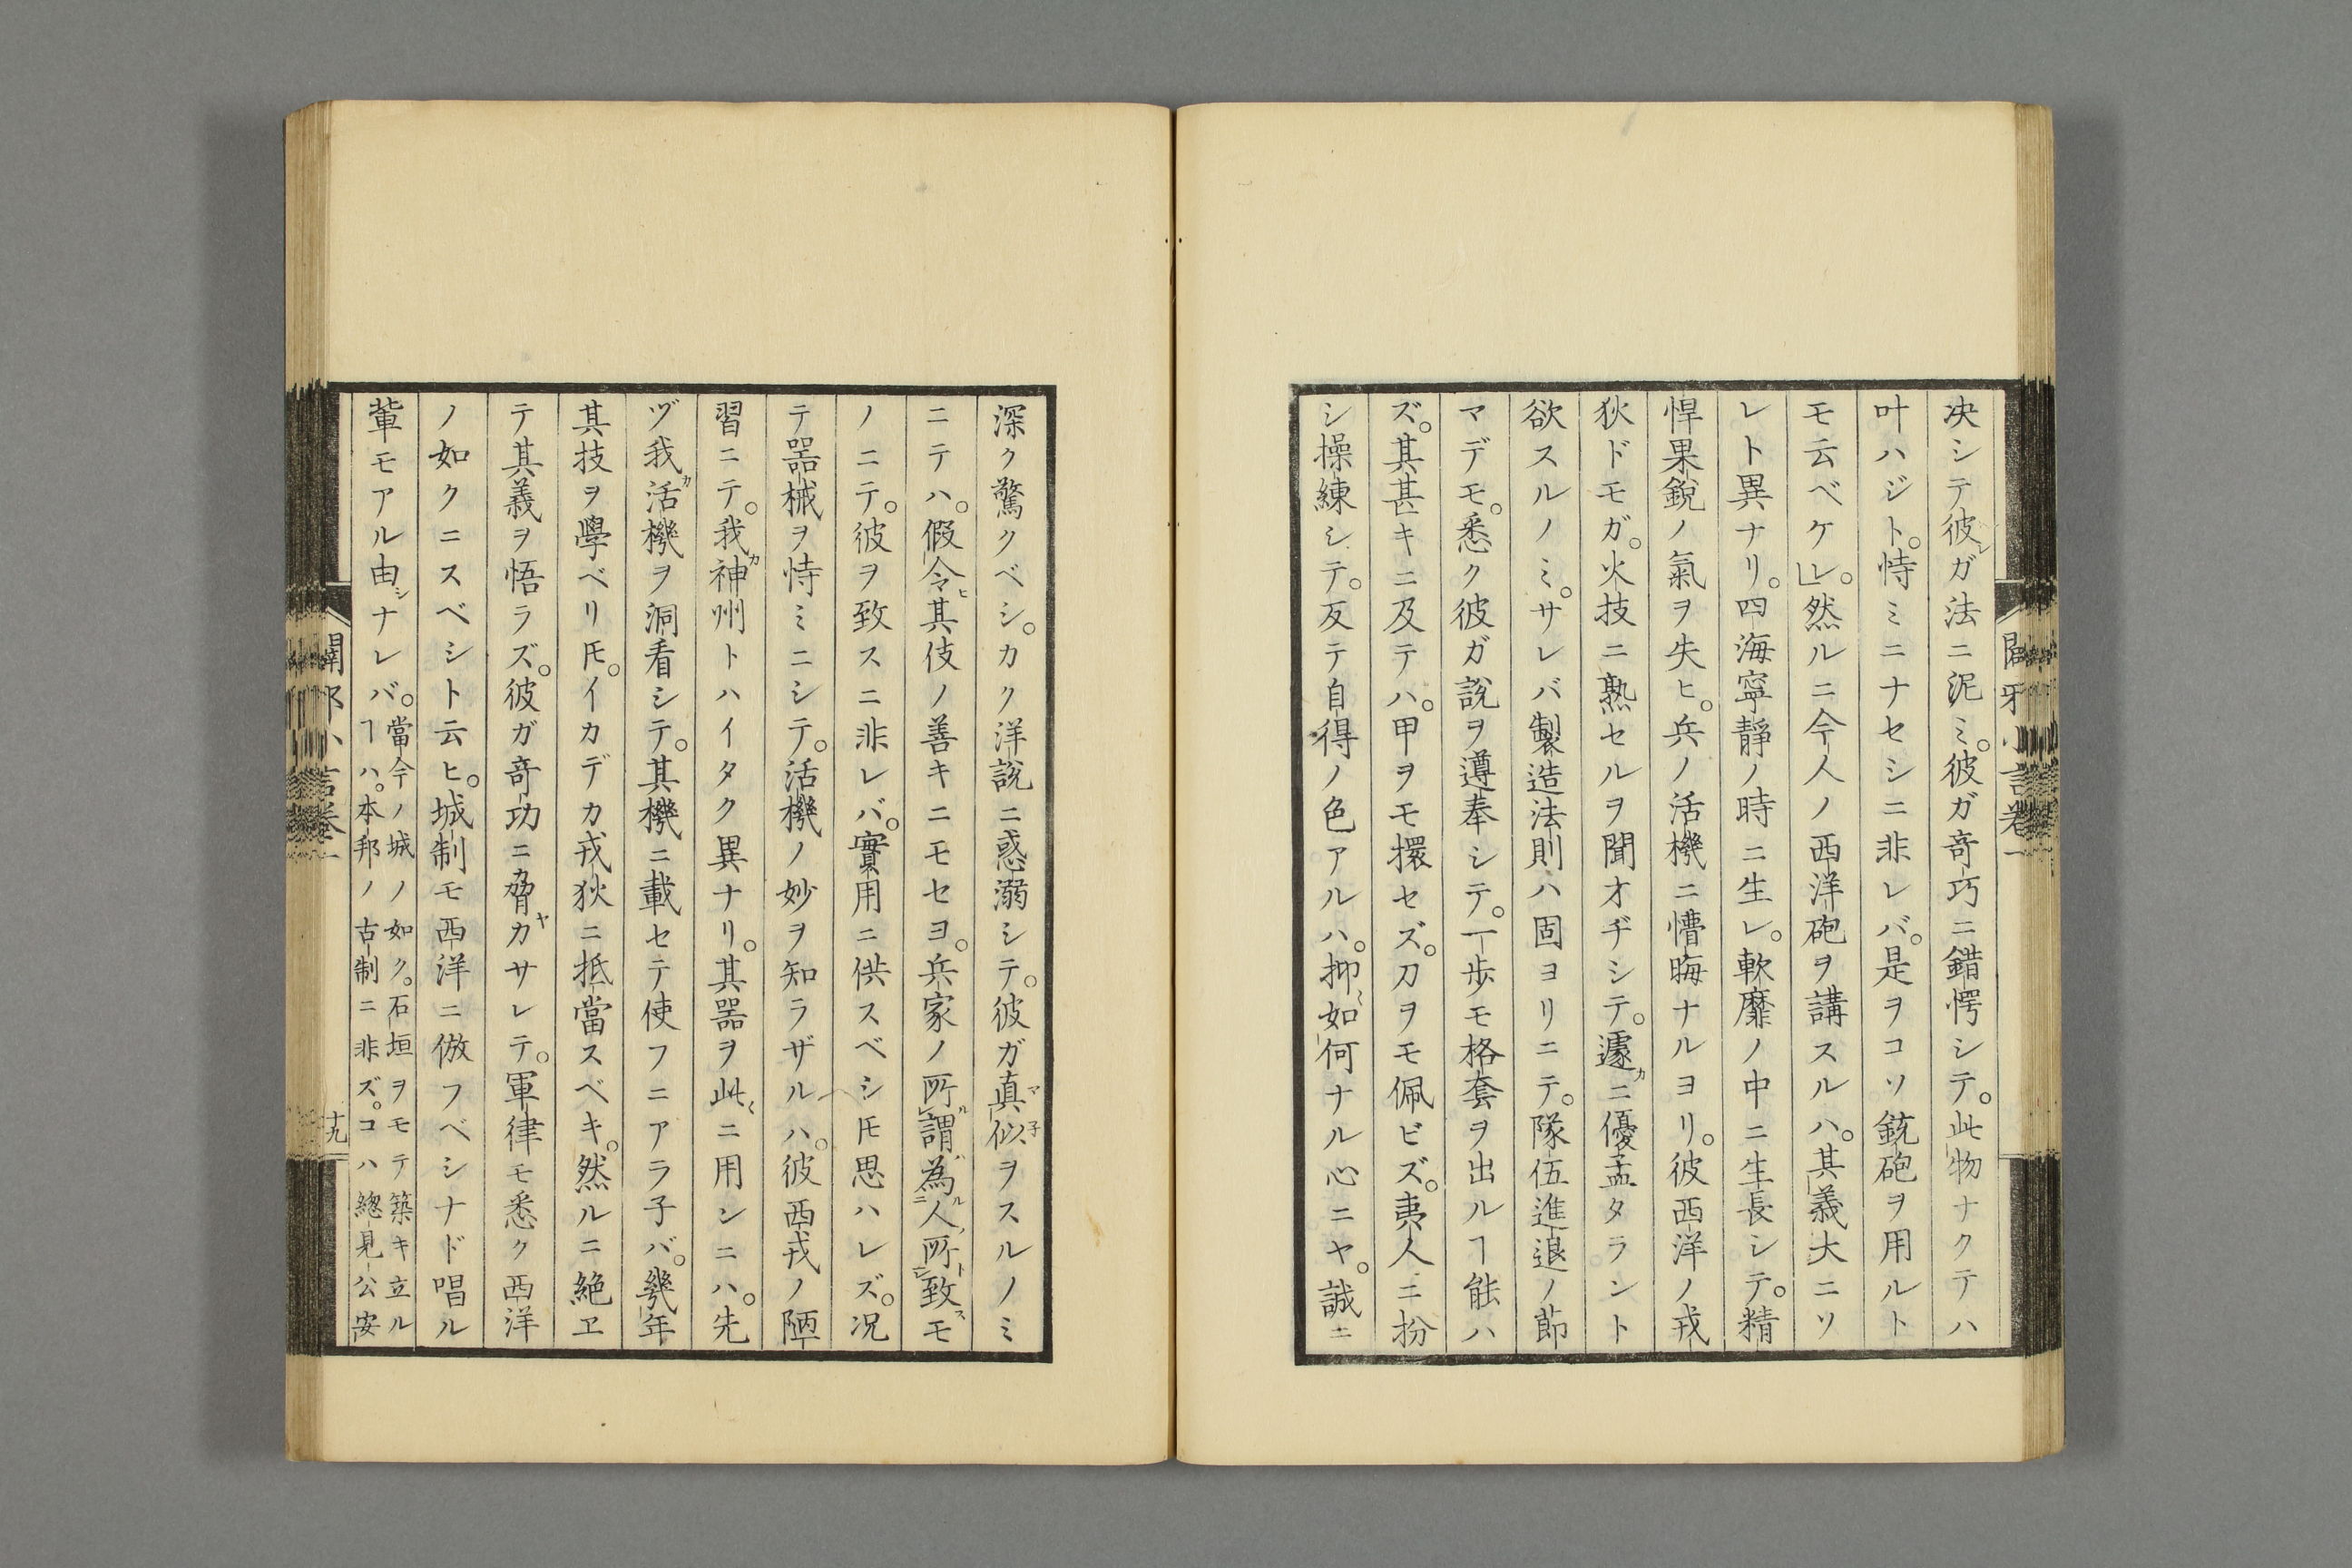 决シテ彼ガ法ニ泥ミ。彼ガ奇巧ニ錯愕シテ。此物ナクテハ
叶ハジト。恃ミニナセシニ非レバ。是ヲコソ銃砲ヲ用ルト
モ云ベケレ。」然ルニ今人ノ西洋砲ヲ講スルハ。其義大ニソ
レト異ナリ。四海寧靜ノ時ニ生レ。軟靡ノ中ニ生長シテ。精
悍果銳ノ氣ヲ失ヒ。兵ノ活機ニ懵晦ナルヨリ。彼西洋ノ戎
狄ドモガ。火技ニ熟セルヲ聞オヂシテ。遽カニ優孟タラント
欲スルノミ。サレバ製造法則ハ固ヨリニテ。隊伍進退ノ節
マデモ。悉ク彼ガ說ヲ遵奉シテ。一歩モ格套ヲ出ルヿ能ハ
ズ。其甚キニ及テハ。甲ヲモ擐セズ。刀ヲモ佩ビズ。夷人ニ扮
シ操練シテ。反テ自得ノ色アルハ。抑ミ如何ナル心ニヤ。誠ニ
深ク驚クベシ。カク洋說ニ惑溺シテ。彼ガ真似ヲスルノミ
ニテハ。假令ヒ其伎ノ善キニモセヨ。兵家ノ所謂為人所致モ
ノニテ。彼ヲ致スニ非レバ。實用ニ供スベシ𪜈思ハレズ。况
テ器械ヲ恃ミニシテ。活機ノ妙ヲ知ラザルハ。彼西戎ノ陋
習ニテ。我カ神州トハイタク異ナリ。其器ヲ此ニ用ンニハ。先
ヅ我カ活機ヲ洞看シテ。其機ニ載セテ使フニアラ子バ。幾年
其技ヲ學ベリ𪜈。イカデカ戎狄ニ抵當スベキ。然ルニ絶ヱ
テ其義ヲ悟ラズ。彼ガ奇功ニ脅カサレテ。軍律モ悉ク西洋
ノ如クニスベシト云ヒ。城制モ西洋ニ倣フベシナド唱ル
輩モアル由シナレバ。當今ノ城ノ如ク。石垣ヲモテ築キ立ル
ヿハ。本邦ノ古制ニ非ズ。コハ總見公安
十九